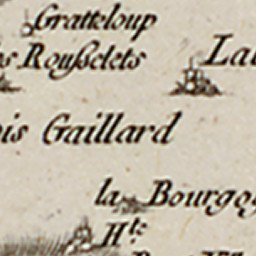 Gratteloup
Rousselets
Gaillard
la Bourgo
H.te